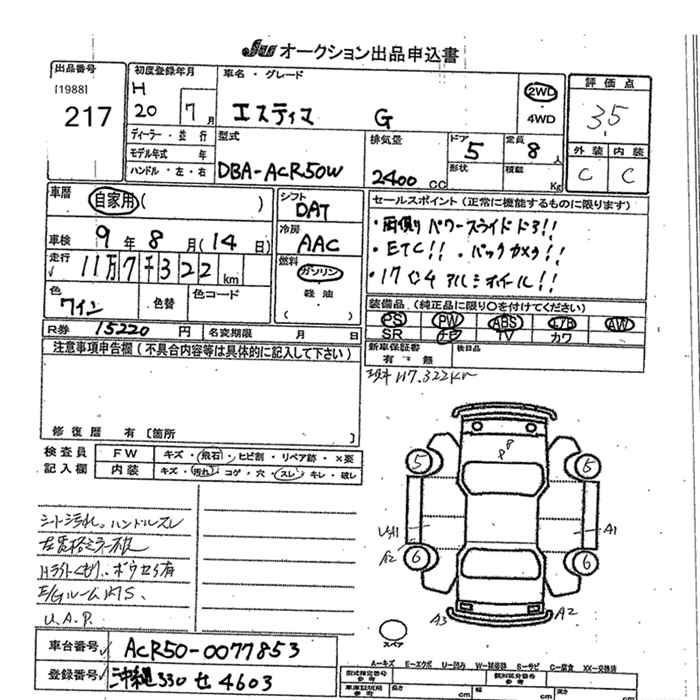 JU オークション出品申込書
出品番号
[1988]
217
初度登録年月
H
20 7月
車名・グレード
エスティマ G
2WD
4WD
評価点
3.5
外装 内装
C C
ディーラー・並行
モデル年式 年
ハンドル・左・右
型式
DBA-ACR50W
排気量
2400 cc
ドア
5
形状
定員
8人
積載
Kg
車歴
自家用 ( )
車検 9年 8月 (14日)
走行 11万7千322 km
色
ワイン
色替
色コード
シフト
DAT
冷房
AAC
燃料
ガソリン
軽油
( )
セールスポイント (正常に機能するものに限ります)
・両側パワースライドドア!!
・ETC!! ・バックカメラ!!
・17インチアルミホイール!!
装備品 (純正品に限り○を付けてください)
PS PW ABS エアB AW
SR ナビ TV カワ
R券 15220 円 名変期限 月 日
新車保証書 後日品
有・無
注意事項申告欄 (不具合内容等は具体的に記入して下さい)
117.322km
修復歴 有 [箇所 ]
検査員
記入欄
FW キズ・飛石・ヒビ割・リペア跡・×要
内装 キズ・汚れ・コゲ・穴・スレ・キレ・破レ
シート汚れ。ハンドルスレ
H ライトくもり、
U.A.P.
8
8
5 5
6 6
A1
A2
A3 A2
スペア
A-キズ E-エクボ U-凹み W-補修跡 S-サビ C-腐食 XX-交換済
車台番号 ACR50-0077853
登録番号 沖縄 330 せ 4603
型式指定番号
参考
類別区分番号
参考
車庫証明用
参考
長さ cm 幅 cm 高さ cm